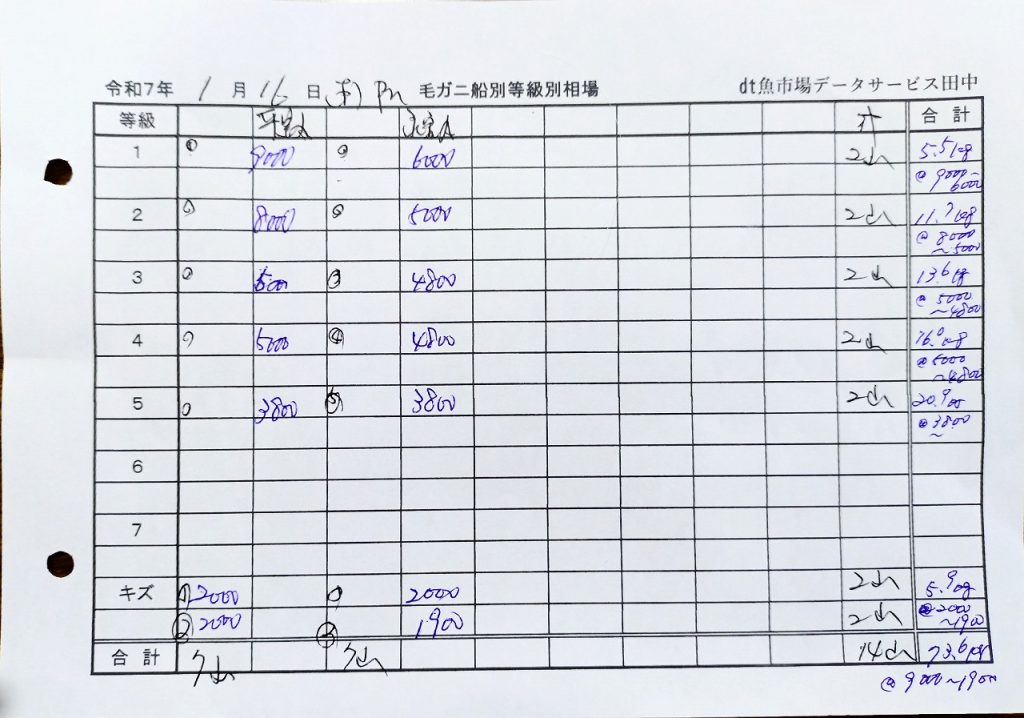 令和7年 1月16日(木)Pm 毛ガニ船別等級別相場 dt魚市場データサービス田中
等級 計 合計
1 ① 9000 ① 6000 2山 5.5kg
@9000~6000
2 ① 8000 ② 5000 2山 11.7kg
@8000~5000
3 ① 5000 ③ 4800 2山 13.6kg
@5000~4800
4 ① 5000 ④ 4800 2山 16.0kg
@5000~4800
5 ① 3800 ⑤ 3800 2山 20.9kg
@3800~
6
7
キズ ① 2000 ① 2000 2山 5.9kg
② 2000 ② 1900 2山 @2000~1900
合計 7山 7山 14山 73.6kg
@9000~1900